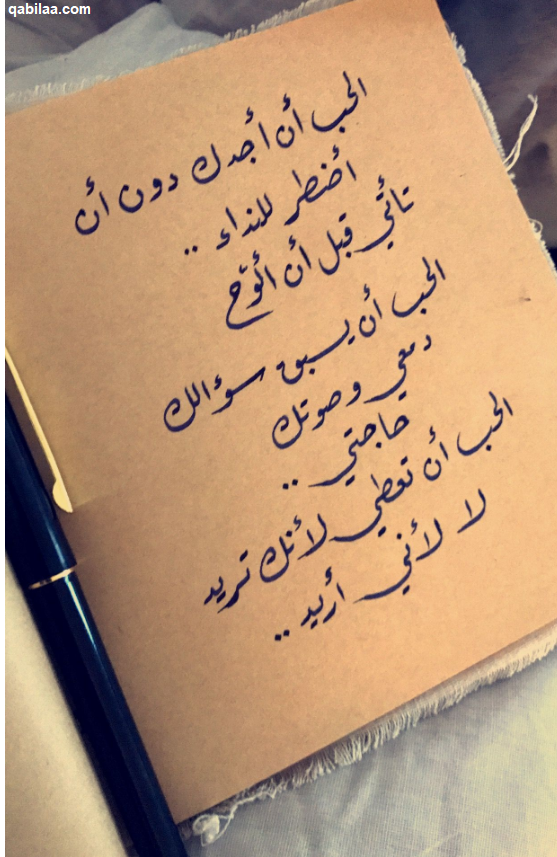 qabilaa.com
الحب أن أجدك دون أن
أضطر للنداء ..
تأتي قبل أن ألوّح
الحب أن يسبق سؤالك
دمعي وصوتك
حاجتي ..
الحب أن تعطي لأنك تريد
لا لأني أريد ..